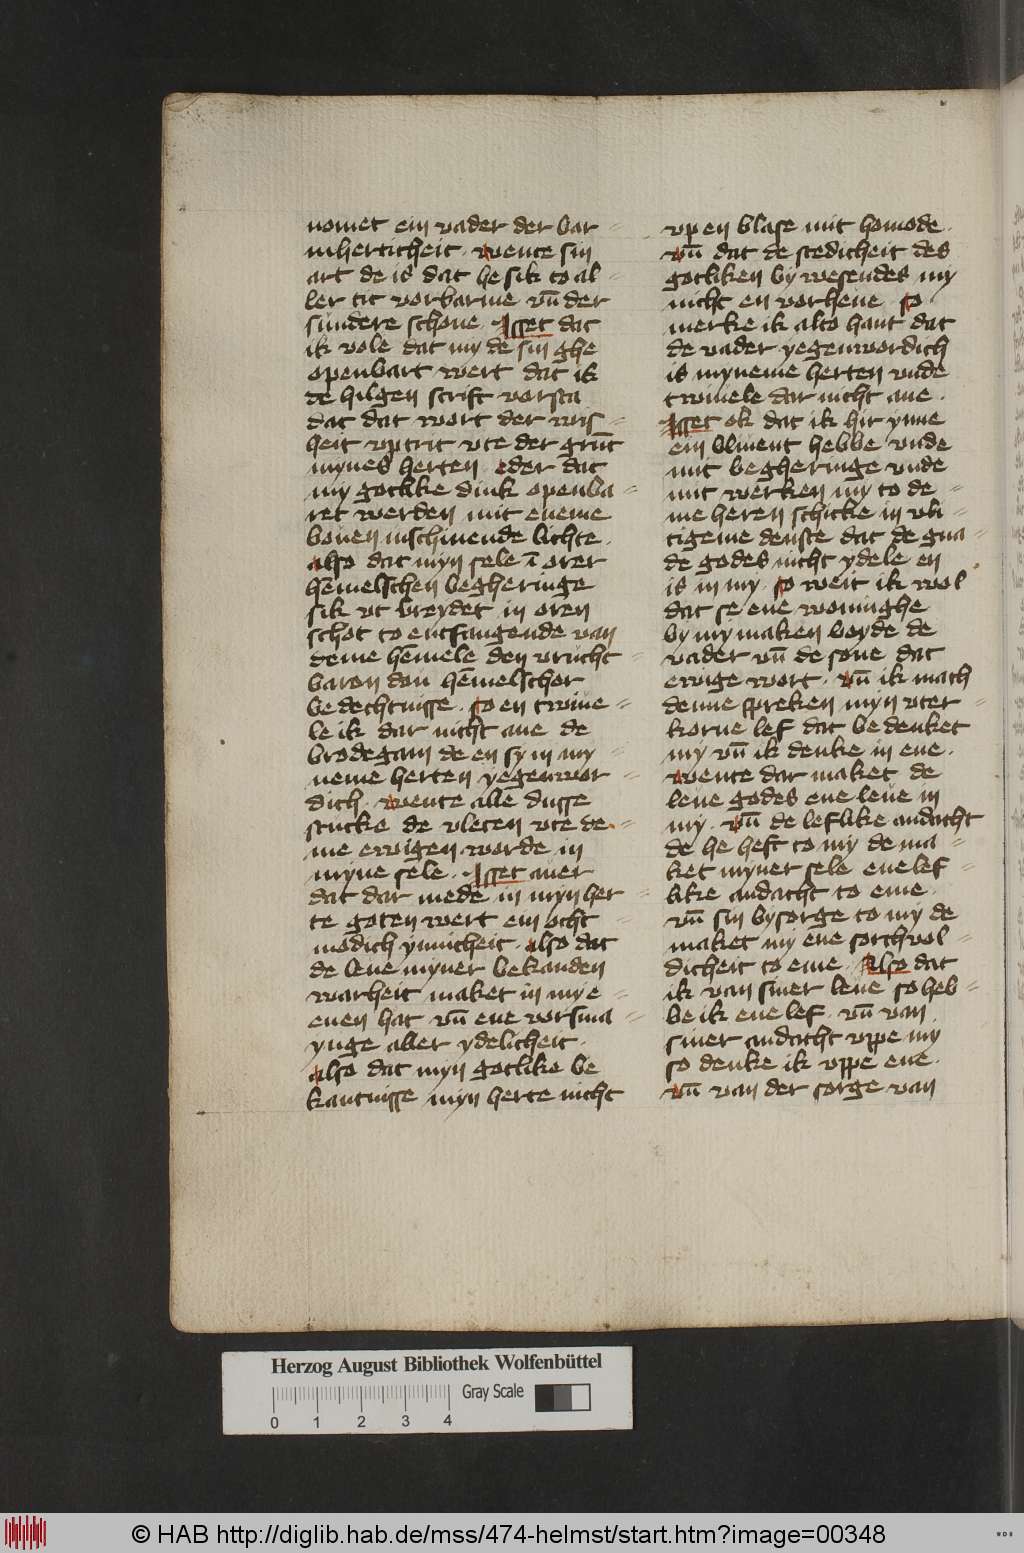 nomet ein vader der bar=
mherticheit. wente sin
art de is dat he sik to al=
ler tit vorbarme vn̄ der
sundere schone. Isset dat
ik vole dat my de sin ghe
openbart wert dat ik
de hilgen scrift vorsta
dat dat wort der wis=
heit vptrit vte der grūt
mynes herten eder dat
my gotlike dink openba=
ret werden mit eneme
bouen inschinende lichte.
also dat myn sele ī orer
hēmelschen begheringe
sik vt breydet in oren
schot to entfangende van
deme hēmele den vrucht=
baren dou hēmelscher
bedechtnisse. so en twiue=
le ik dar nicht ane de
brodegam de en sy in my=
neme herten yegenwor=
dich. wente alle dusse
stucke de vleten vte de=
me ewigen worde in
myne sele. Isset auer
dat dar mede in myn her=
te goten wert ein ocht=
modich ynnicheit. also dat
de leue myner bekanden
warheit maket in my e=
enen hat vn̄ ene vorsma=
ynge aller ydelicheit.
also dat myn gotlike be
kantnisse myn herte nicht
vp en blase mit homode.
vn̄ dat de stedicheit des
gotliken by wesendes my
nicht en vorheue. so
merke ik alto hant dat
de vader yegenwordich
is myneme herten vnde
twiuele dar nicht ane.
Isset ok dat ik hir ynne
ein vliment hebbe vnde
mit begheringe vnde
mit werken my to de=
me heren schicke in vli=
tigeme denste dat de gna=
de godes nicht ydele en
is in my. so weit ik wol
dat se ene woninghe
by my maken beyde de
vader vn̄ de sone dat
ewige wort. vn̄ ik mach
denne spreken myn vter=
korne lef dat bedenket
my vn̄ ik denke in ene.
wente dar maket de
leue godes ene leue in
my. vn̄ de leflike andacht
de he heft to my de ma=
ket myner sele ene lef=
like andacht to eme.
vn̄ sin bysorge to my de
maket my ene sorchvol=
dicheit to eme. Also dat
ik van siner leue so heb=
be ik ene lef. vn̄ van
siner andacht vppe my
so denke ik vppe ene.
vn̄ van der sorge van
Herzog August Bibliothek Wolfenbüttel
Gray Scale
0 1 2 3 4
© HAB http://diglib.hab.de/mss/474-helmst/start.htm?image=00348